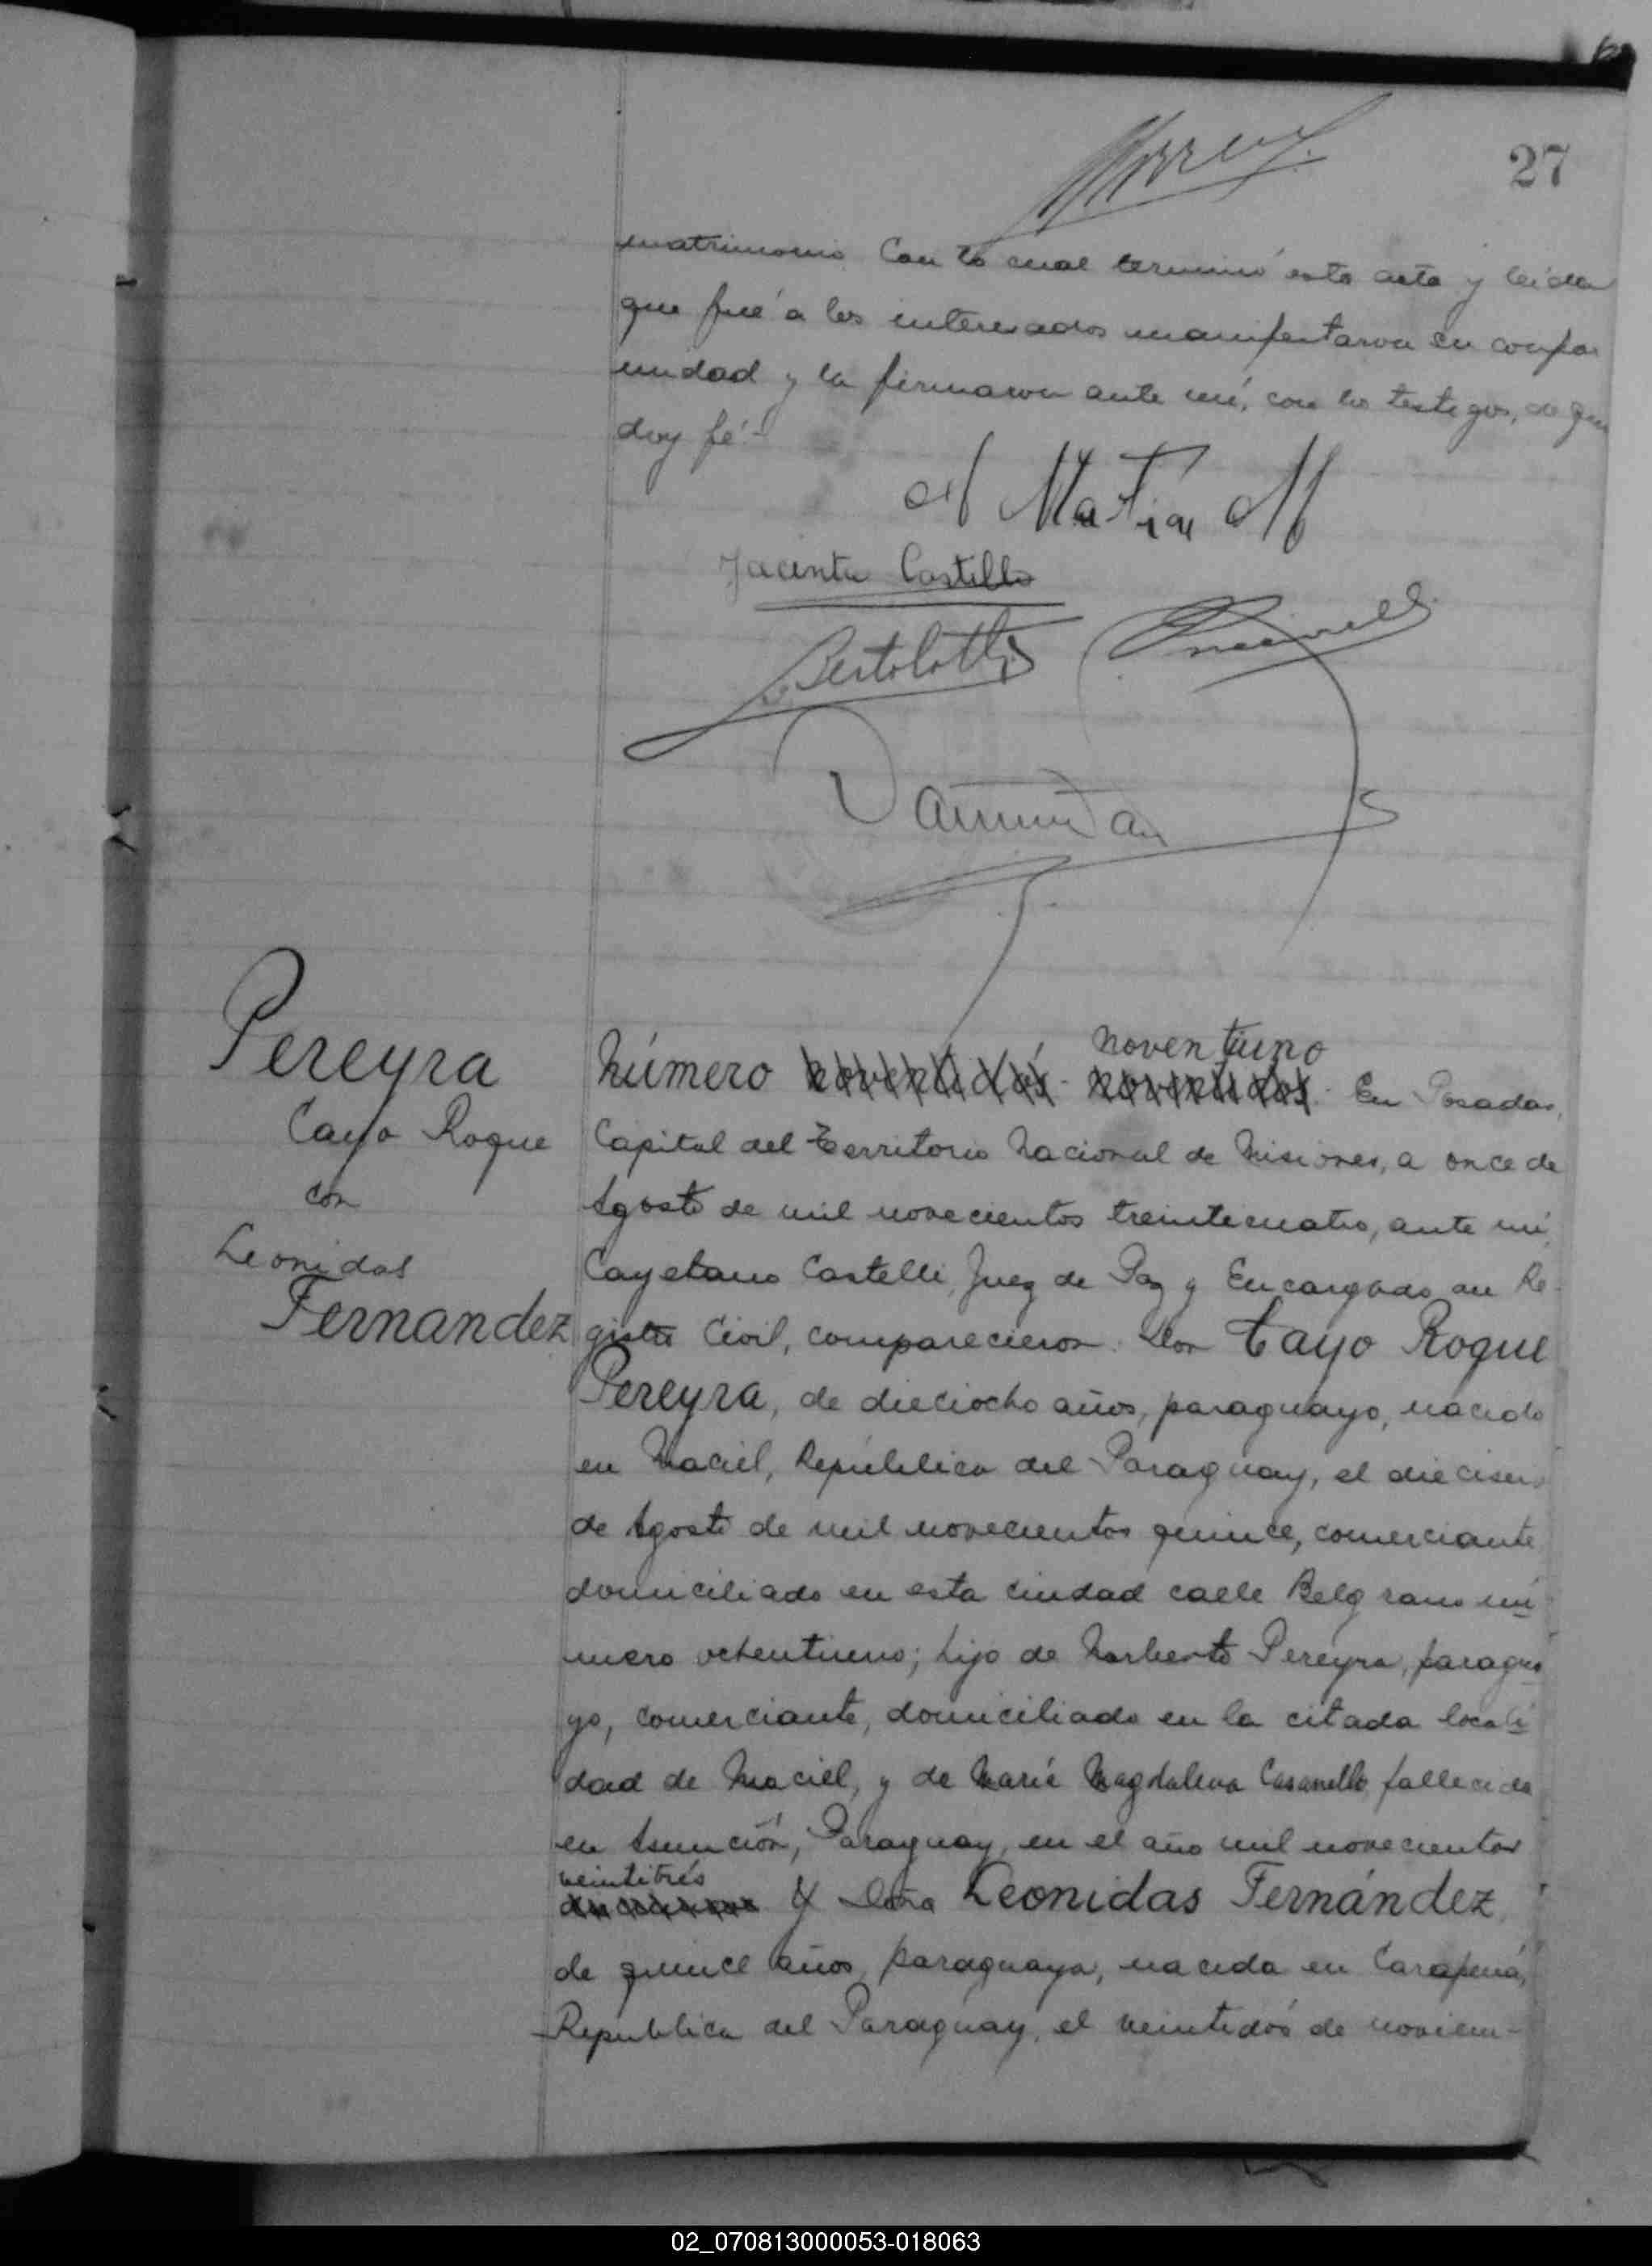 27
matrimonio. Con lo cual terminó esta acta y leida
que fué a los interesados manifestaron su confor
midad y la firmaron ante mí, con los testigos, de que
doy fé.-
Jacinta Castillo
Bertolotti
Pereyra
Cayo Roque
con
Leonidas
Fernandez
noventiuno
Número noventidós - noventidos. En Posadas,
Capital del Territorio Nacional de Misiones, a once de
Agosto de mil novecientos treinticuatro, ante mí,
Cayetano Castelli, Juez de Paz y Encargado del Re-
gistro Civil, comparecieron: Don Cayo Roque
Pereyra, de dieciocho años, paraguayo, nacido
en Maciel, República del Paraguay, el dieciseis
de Agosto de mil novecientos quince, comerciante
domiciliado en esta ciudad calle Belgrano nú
mero ochentiuno; hijo de Norberto Pereyra, paragua
yo, comerciante, domiciliado en la citada locali
dad de Maciel, y de María Magdalena Casanello, fallecida
en Asunción, Paraguay, en el año mil novecientos
veintitrés
Y Doña Leonidas Fernández,
de quince años, paraguaya, nacida en Carapeguá,
República del Paraguay, el veintidós de noviem-
02_070813000053-018063